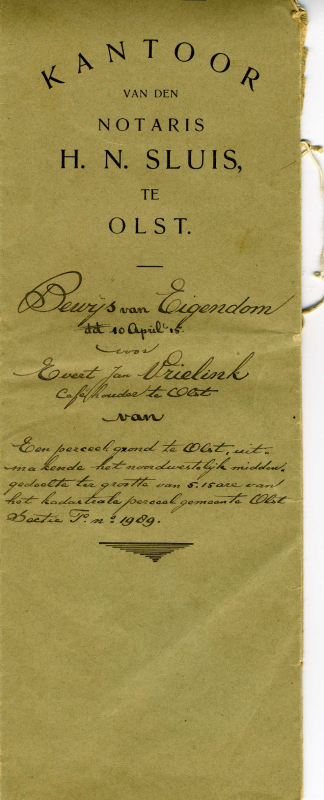 KANTOOR
VAN DEN
NOTARIS
H. N. SLUIS,
TE
OLST.
Bewijs van Eigendom
dd 10 April 15.
voor
Evert Jan Vrielink
Caféhouder te Olst
van
Een perceel grond te Olst, uit-
makende het noordwestelijk midden-
gedeelte ter grootte van 5.15 are van
het kadastrale perceel gemeente Olst
Sectie F. no 1989.